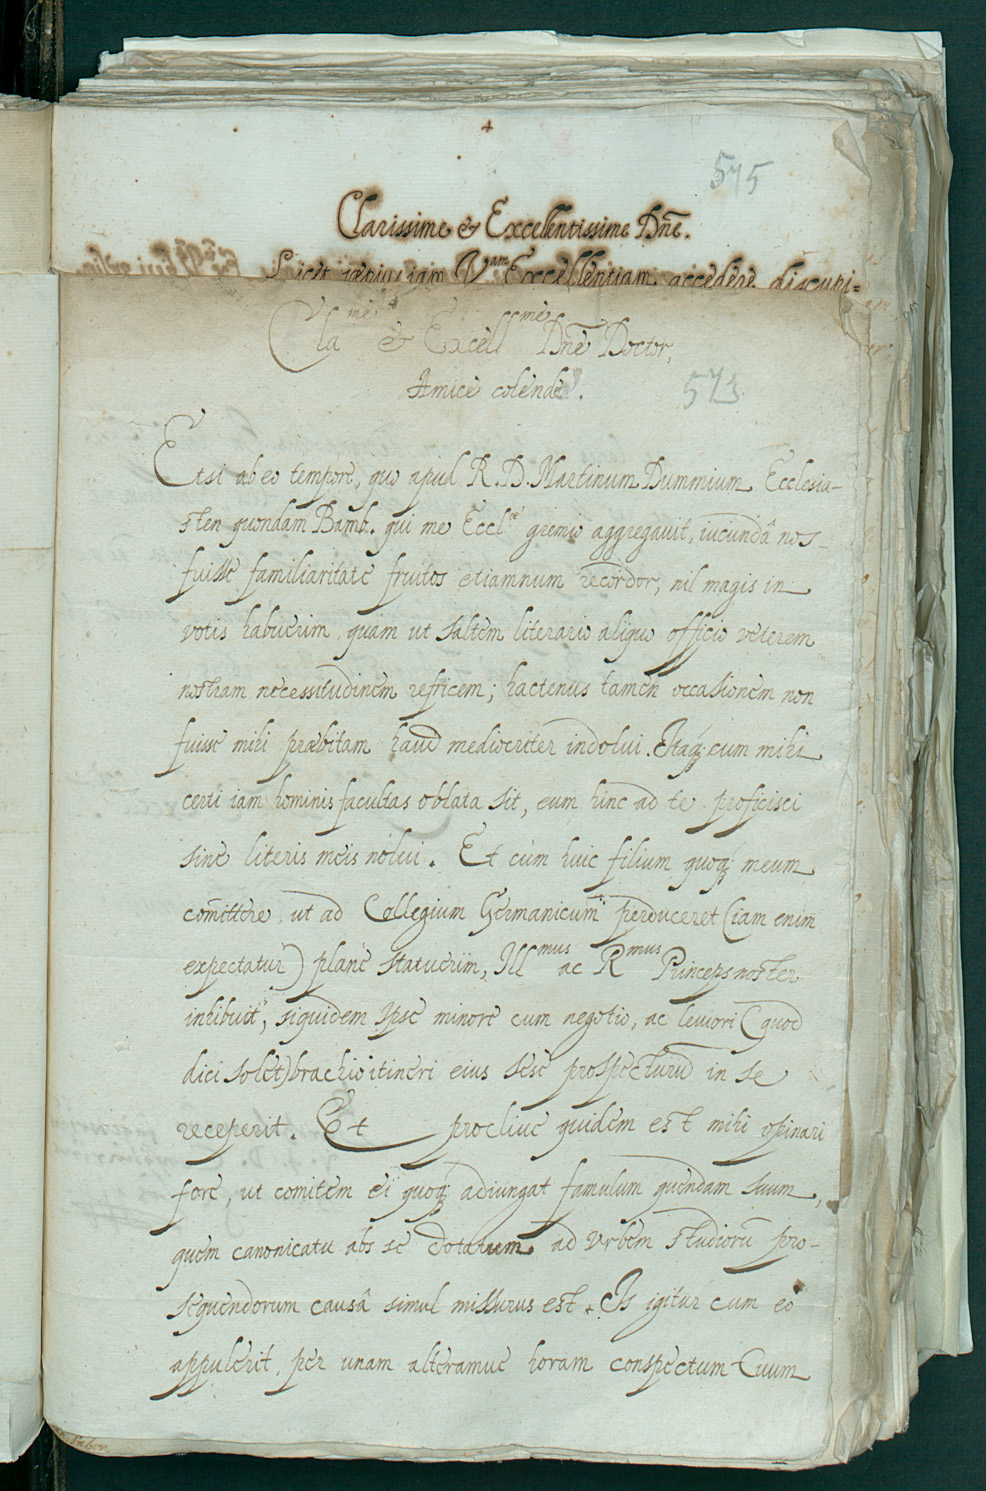 575
Clarissime & Excellentissime Dñe.
Licet sæpius iam V am Excellentiam accedere discupi=
Cla me & Excell me Dñe Doctor,
Amice colende.
573
Etsi ab eo tempore, quo apud R. D. Martinum Dummium Ecclesia-
sten quondam Bamb. qui me Eccl æ gremio aggregavit, iucundâ nos
fuisse familiaritate fruitos etiamnum recordor, nil magis in
votis habuerim quam ut saltem literario aliquo officio veterem
nostram necessitudinem reficem; hactenus tamen occasionem non
fuisse mihi præbitam haud mediocriter indolui. Itaq; cum mihi
certi iam hominis facultas oblata sit, eum hinc ad te proficisci
sine literis meis nolui. Et cùm huic filium quoq; meum
com̃ittere, ut ad Collegium Germanicum perduceret (iam enim
expectatur) planè statuerim, Ill mus ac R mus Princeps noster
inhibuit, siquidem ipse minore cum negotio, ac leuiori (quod
dici solet) brachio itineri eius sese prospecturũ in se
receperit. Et procliue quidem est mihi opinari
fore, ut comitem ei quoq; adiungat famulum quendam suum,
quem canonicatu abs se dotatum ad Vrbem studiorũ pro-
sequendorum causâ simul missurus est. Is igitur cum eò
appulerit, per unam alteramue horam conspectum tuum